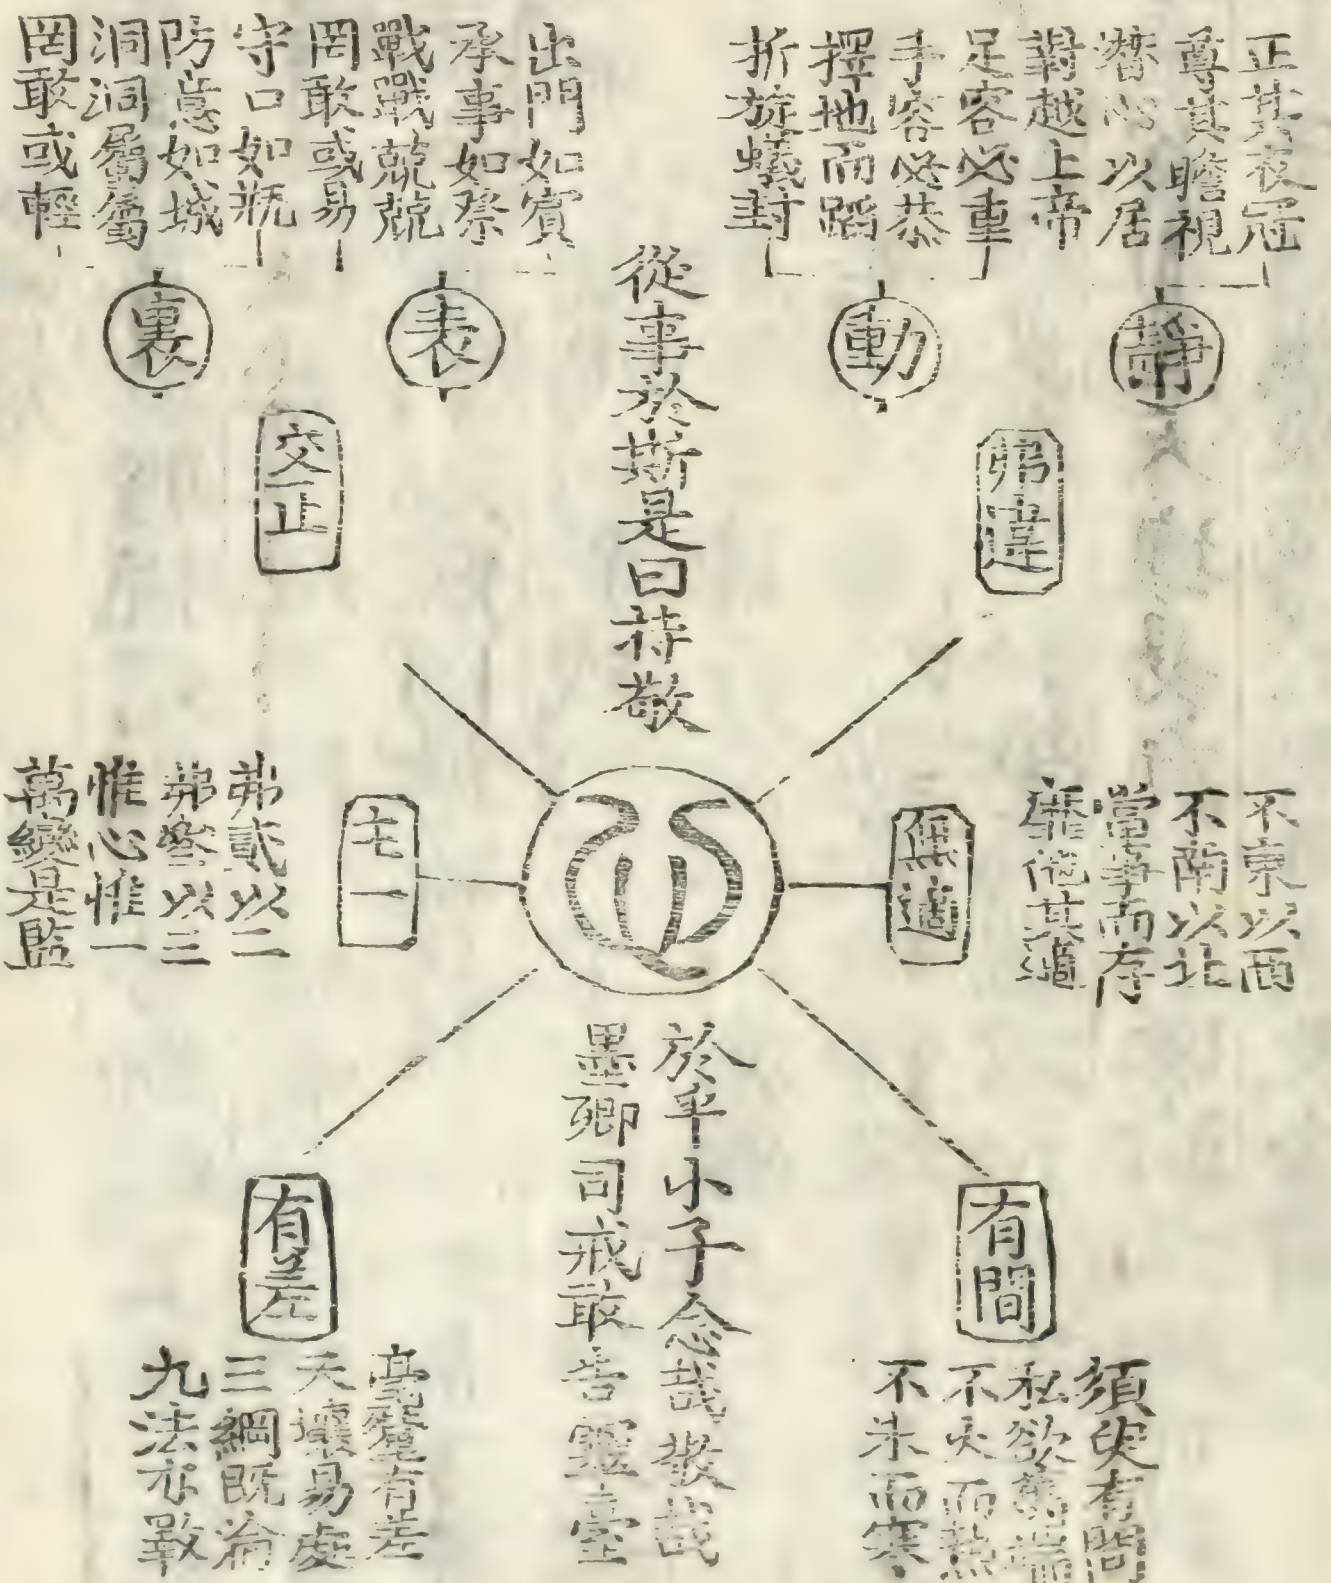 正其衣冠
尊其瞻視
潛心以居
對越上帝
足容必重
手容必恭
擇地而蹈
折旋蟻封
出門如賓
承事如祭
戰戰兢兢
罔敢或易
守口如瓶
防意如城
洞洞屬屬
罔敢或輕
靜
動
表
裏
弗違
從事於斯是曰持敬
交正
不東以西
不南以北
當事而存
靡他其適
無適
心
主一
弗貳以二
弗參以三
惟心惟一
萬變是監
有間
須臾有間
私欲萬端
不火而熱
不氷而寒
於乎小子念哉敬哉
墨卿司戒敢告靈臺
有差
毫釐有差
天壤易處
三綱既淪
九法亦斁